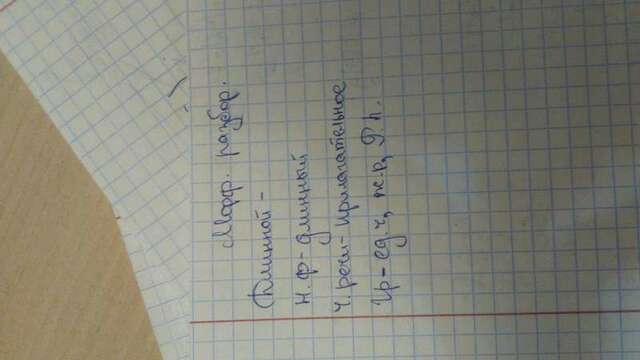 Морф. разбор.
Длинной -
н. ф- длинный
Ч. речи- прилагательное
Гр- ед.ч, ж.р, Р.п.